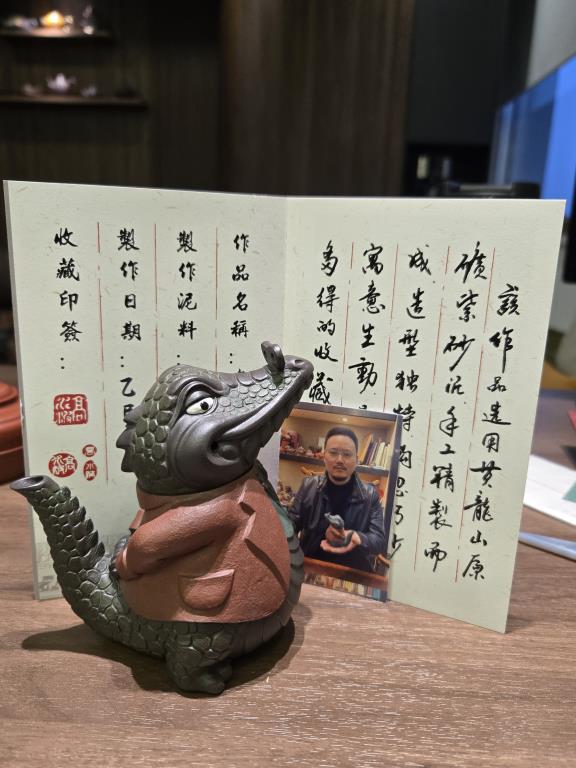 該作品選用黄龍山原
礦紫砂泥手工精製而
成造型獨特构思巧
寓意生動
多得的收藏
作品名稱：
製作泥料：
製作日期：乙巳
收藏印簽：